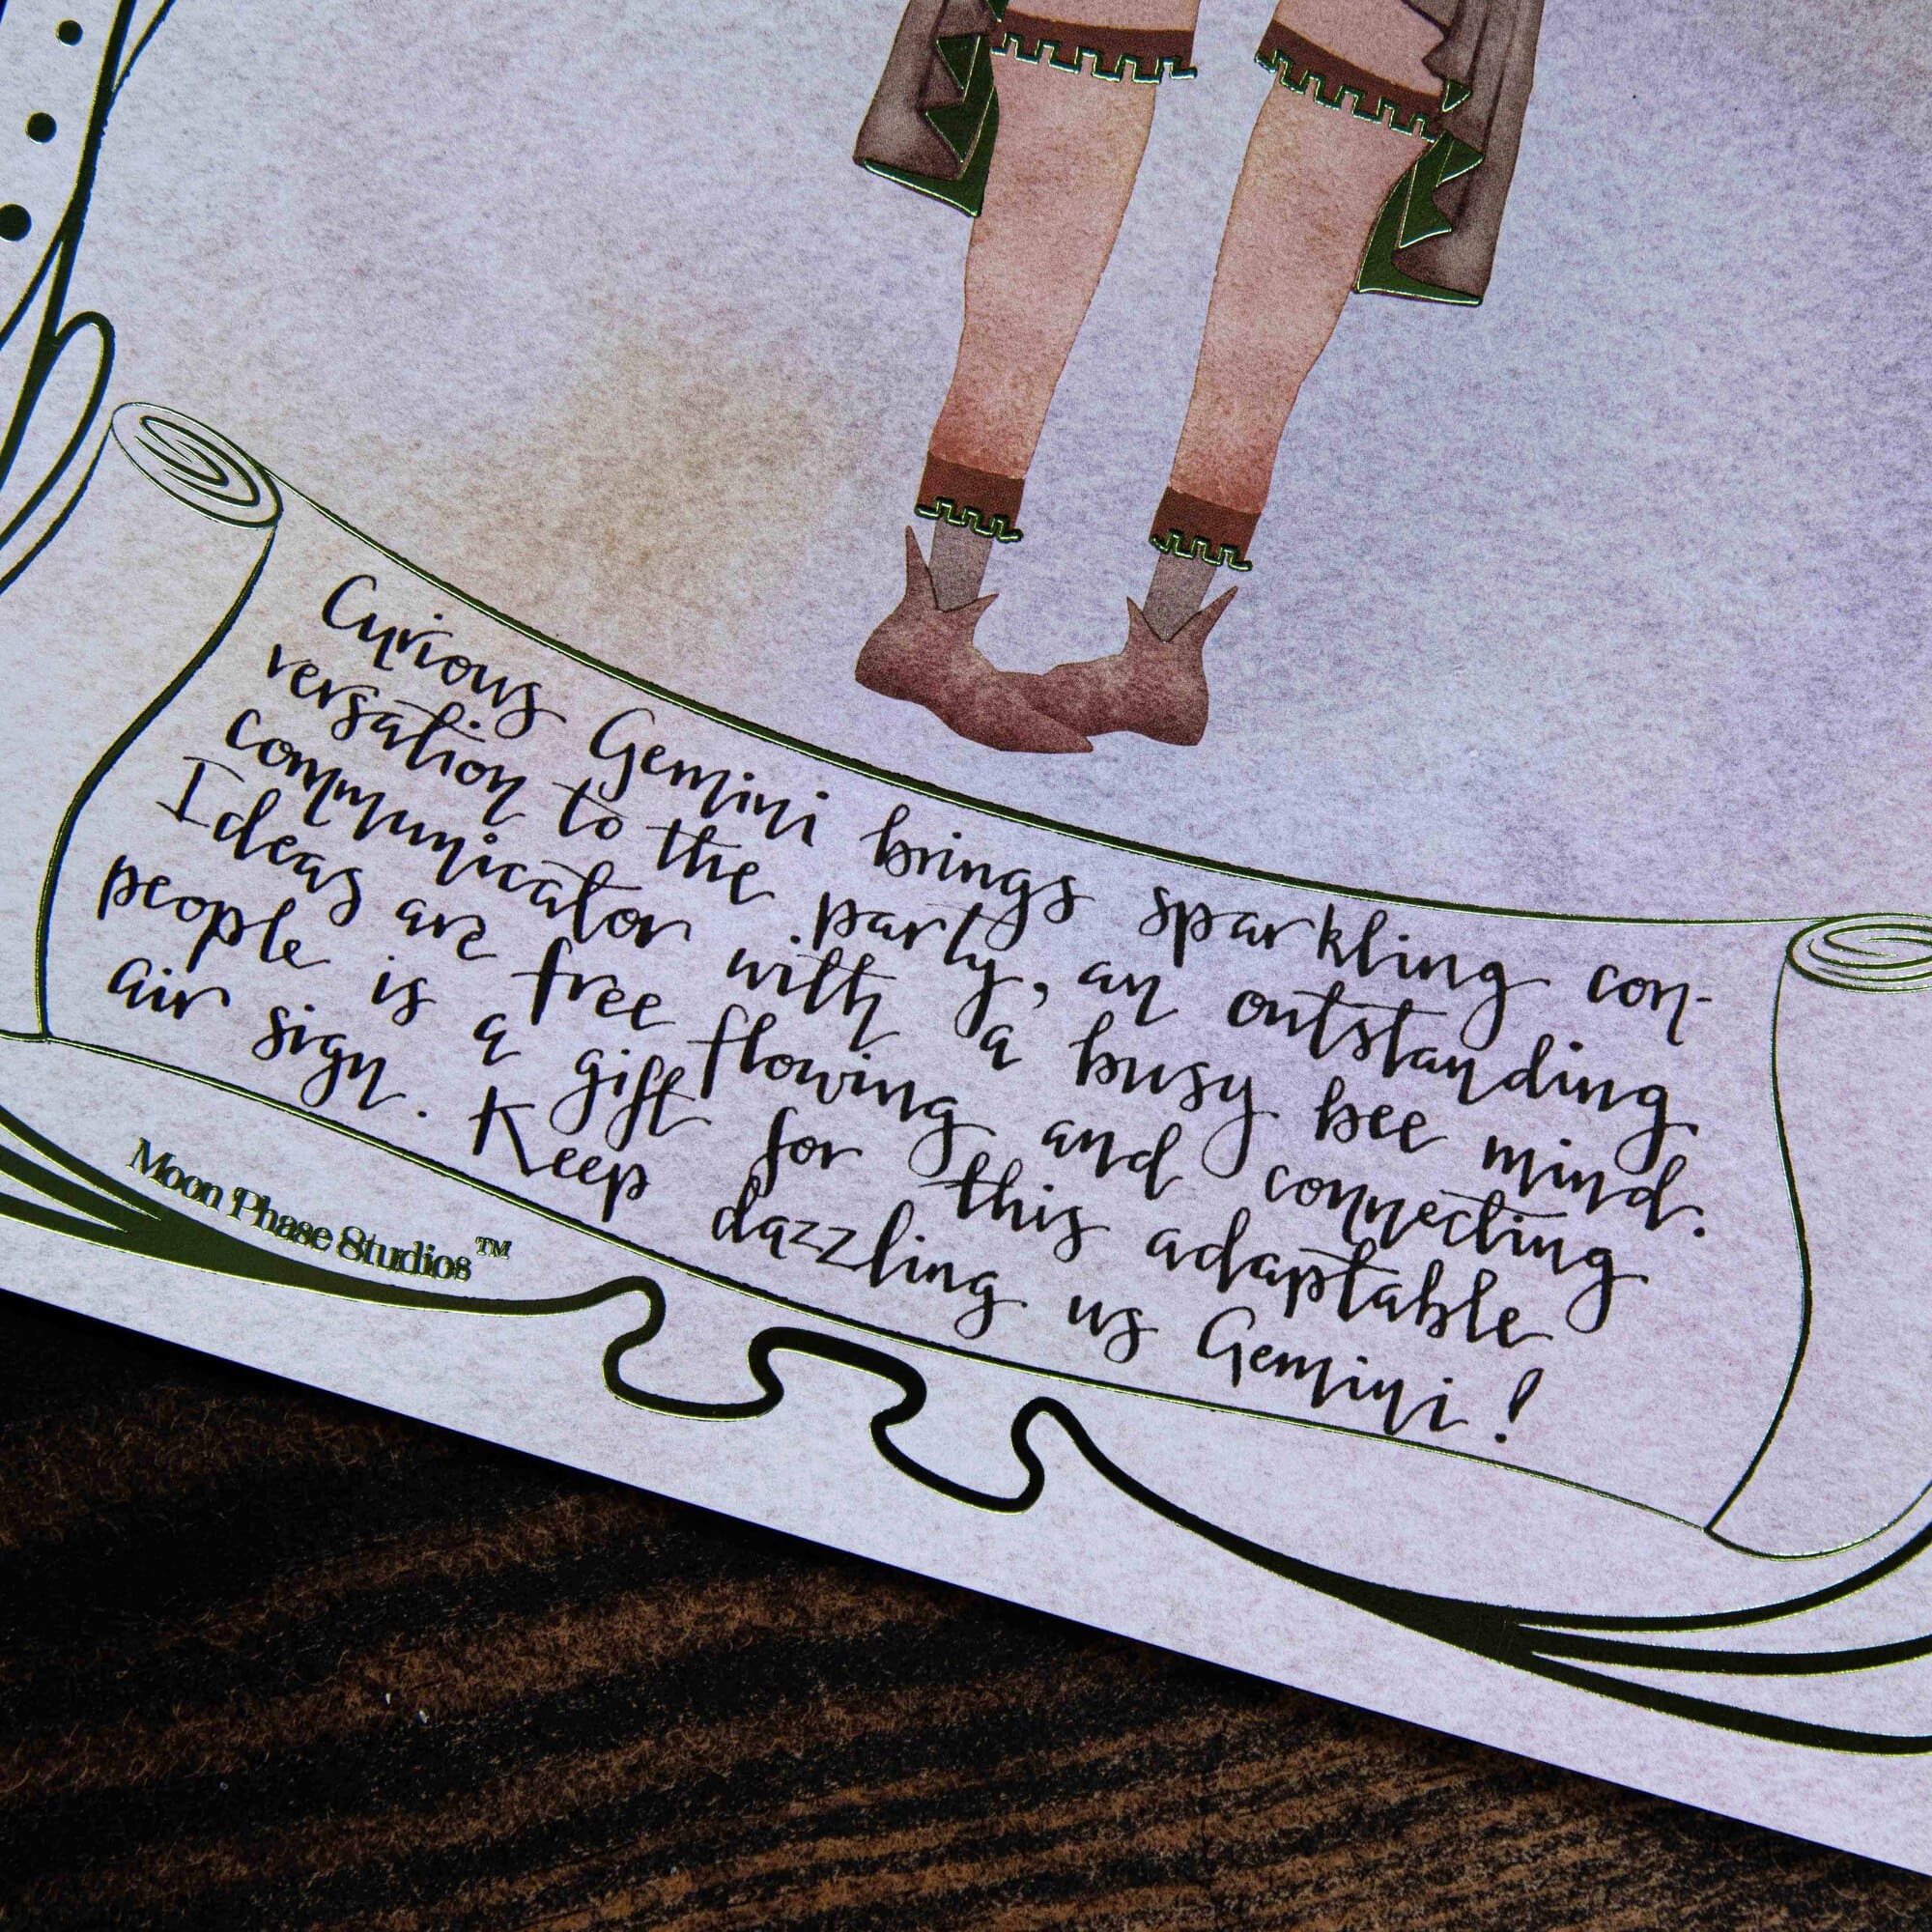 Curious Gemini brings sparkling con-
versation to the party, an outstanding
communicator with a busy bee mind.
Ideas are free flowing and connecting
people is a gift for this adaptable
air sign. Keep dazzling us Gemini!
Moon Phase Studios™